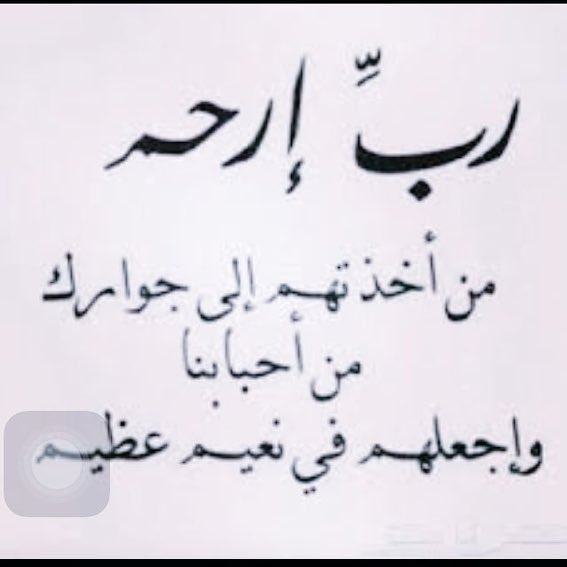 ربِّ إرحم
من أخذتهم إلى جوارك
من أحبابنا
وإجعلهم في نعيم عظيم